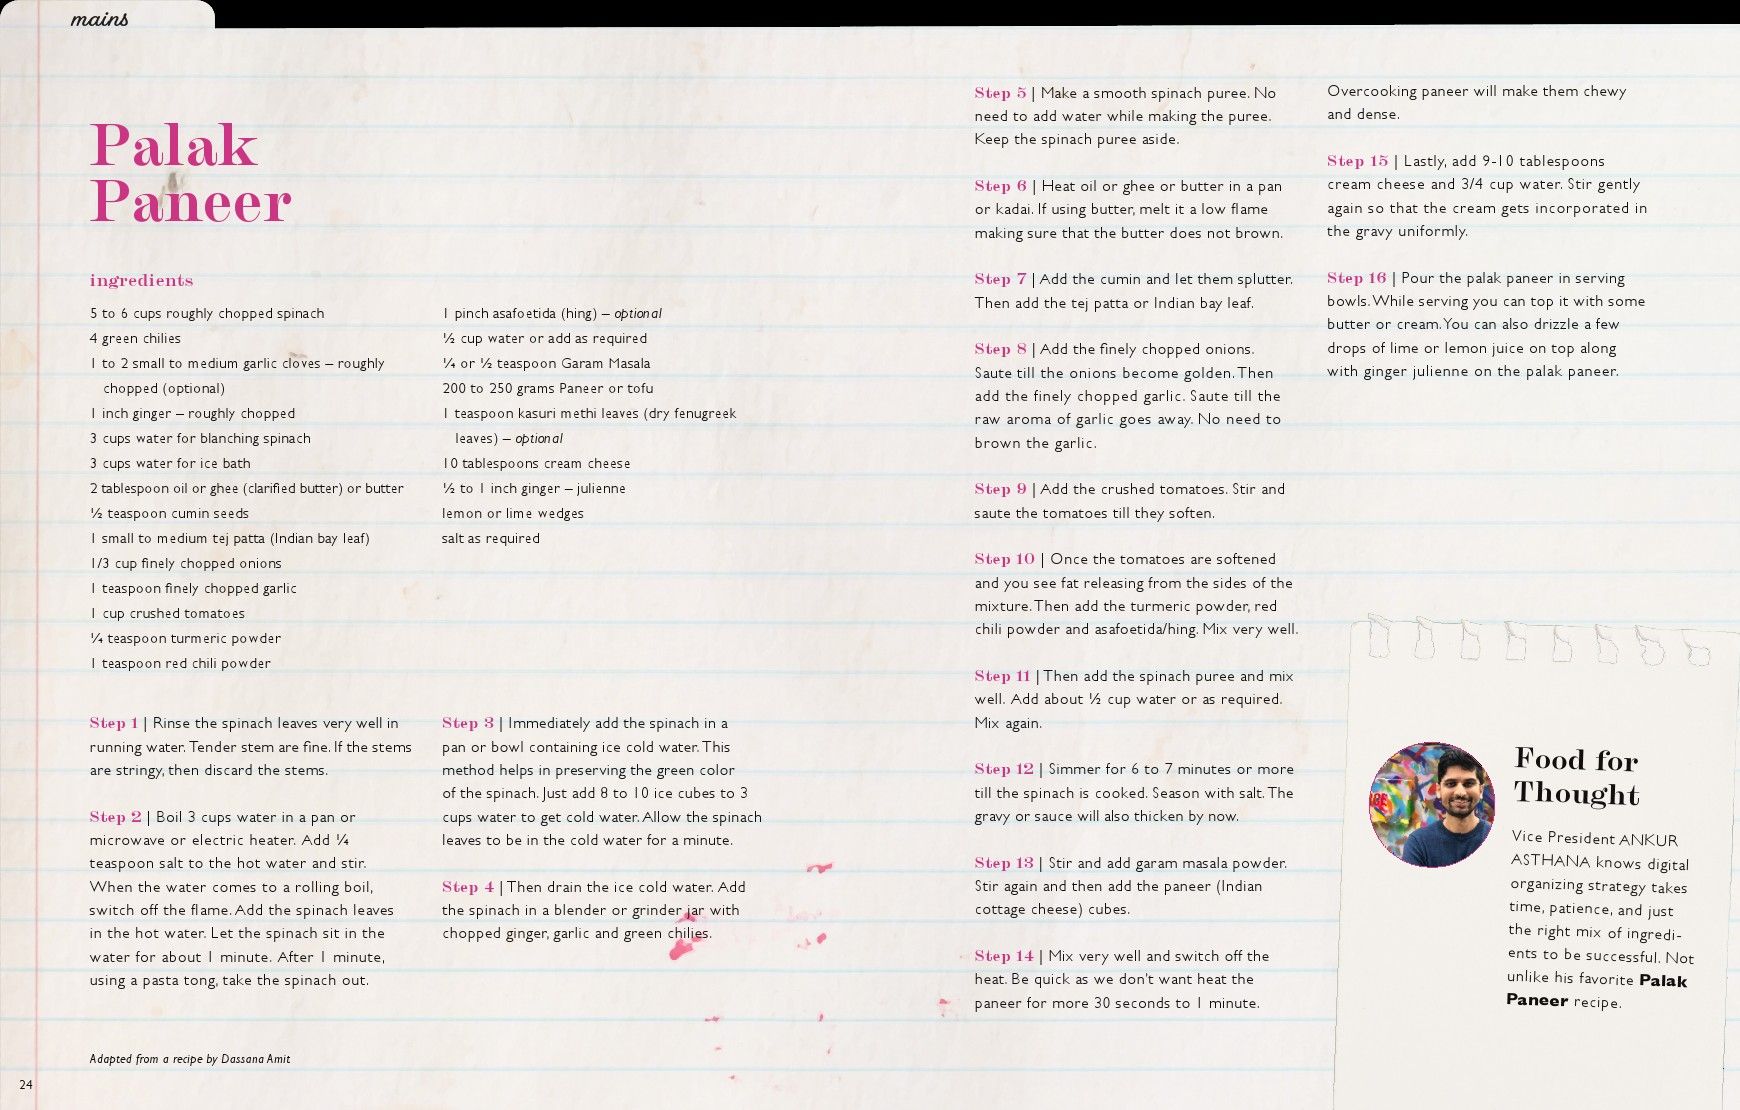 mains
Palak
Paneer
ingredients
5 to 6 cups roughly chopped spinach
4 green chilies
1 to 2 small to medium garlic cloves – roughly
chopped (optional)
1 inch ginger – roughly chopped
3 cups water for blanching spinach
3 cups water for ice bath
2 tablespoon oil or ghee (clarified butter) or butter
½ teaspoon cumin seeds
1 small to medium tej patta (Indian bay leaf)
1/3 cup finely chopped onions
1 teaspoon finely chopped garlic
1 cup crushed tomatoes
¼ teaspoon turmeric powder
1 teaspoon red chili powder
1 pinch asafoetida (hing) – optional
½ cup water or add as required
¼ or ½ teaspoon Garam Masala
200 to 250 grams Paneer or tofu
1 teaspoon kasuri methi leaves (dry fenugreek
leaves) – optional
10 tablespoons cream cheese
½ to 1 inch ginger – julienne
lemon or lime wedges
salt as required
Step 1 | Rinse the spinach leaves very well in
running water. Tender stem are fine. If the stems
are stringy, then discard the stems.
Step 2 | Boil 3 cups water in a pan or
microwave or electric heater. Add ¼
teaspoon salt to the hot water and stir.
When the water comes to a rolling boil,
switch off the flame. Add the spinach leaves
in the hot water. Let the spinach sit in the
water for about 1 minute. After 1 minute,
using a pasta tong, take the spinach out.
Step 3 | Immediately add the spinach in a
pan or bowl containing ice cold water. This
method helps in preserving the green color
of the spinach. Just add 8 to 10 ice cubes to 3
cups water to get cold water. Allow the spinach
leaves to be in the cold water for a minute.
Step 4 | Then drain the ice cold water. Add
the spinach in a blender or grinder jar with
chopped ginger, garlic and green chilies.
Adapted from a recipe by Dassana Amit
24
Step 5 | Make a smooth spinach puree. No
need to add water while making the puree.
Keep the spinach puree aside.
Step 6 | Heat oil or ghee or butter in a pan
or kadai. If using butter, melt it a low flame
making sure that the butter does not brown.
Step 7 | Add the cumin and let them splutter.
Then add the tej patta or Indian bay leaf.
Step 8 | Add the finely chopped onions.
Saute till the onions become golden. Then
add the finely chopped garlic. Saute till the
raw aroma of garlic goes away. No need to
brown the garlic.
Step 9 | Add the crushed tomatoes. Stir and
saute the tomatoes till they soften.
Step 10 | Once the tomatoes are softened
and you see fat releasing from the sides of the
mixture. Then add the turmeric powder, red
chili powder and asafoetida/hing. Mix very well.
Step 11 | Then add the spinach puree and mix
well. Add about ½ cup water or as required.
Mix again.
Step 12 | Simmer for 6 to 7 minutes or more
till the spinach is cooked. Season with salt. The
gravy or sauce will also thicken by now.
Step 13 | Stir and add garam masala powder.
Stir again and then add the paneer (Indian
cottage cheese) cubes.
Step 14 | Mix very well and switch off the
heat. Be quick as we don't want heat the
paneer for more 30 seconds to 1 minute.
Overcooking paneer will make them chewy
and dense.
Step 15 | Lastly, add 9-10 tablespoons
cream cheese and 3/4 cup water. Stir gently
again so that the cream gets incorporated in
the gravy uniformly.
Step 16 | Pour the palak paneer in serving
bowls. While serving you can top it with some
butter or cream. You can also drizzle a few
drops of lime or lemon juice on top along
with ginger julienne on the palak paneer.
Food for
Thought
Vice President ANKUR
ASTHANA knows digital
organizing strategy takes
time, patience, and just
the right mix of ingredi-
ents to be successful. Not
unlike his favorite Palak
Paneer recipe.